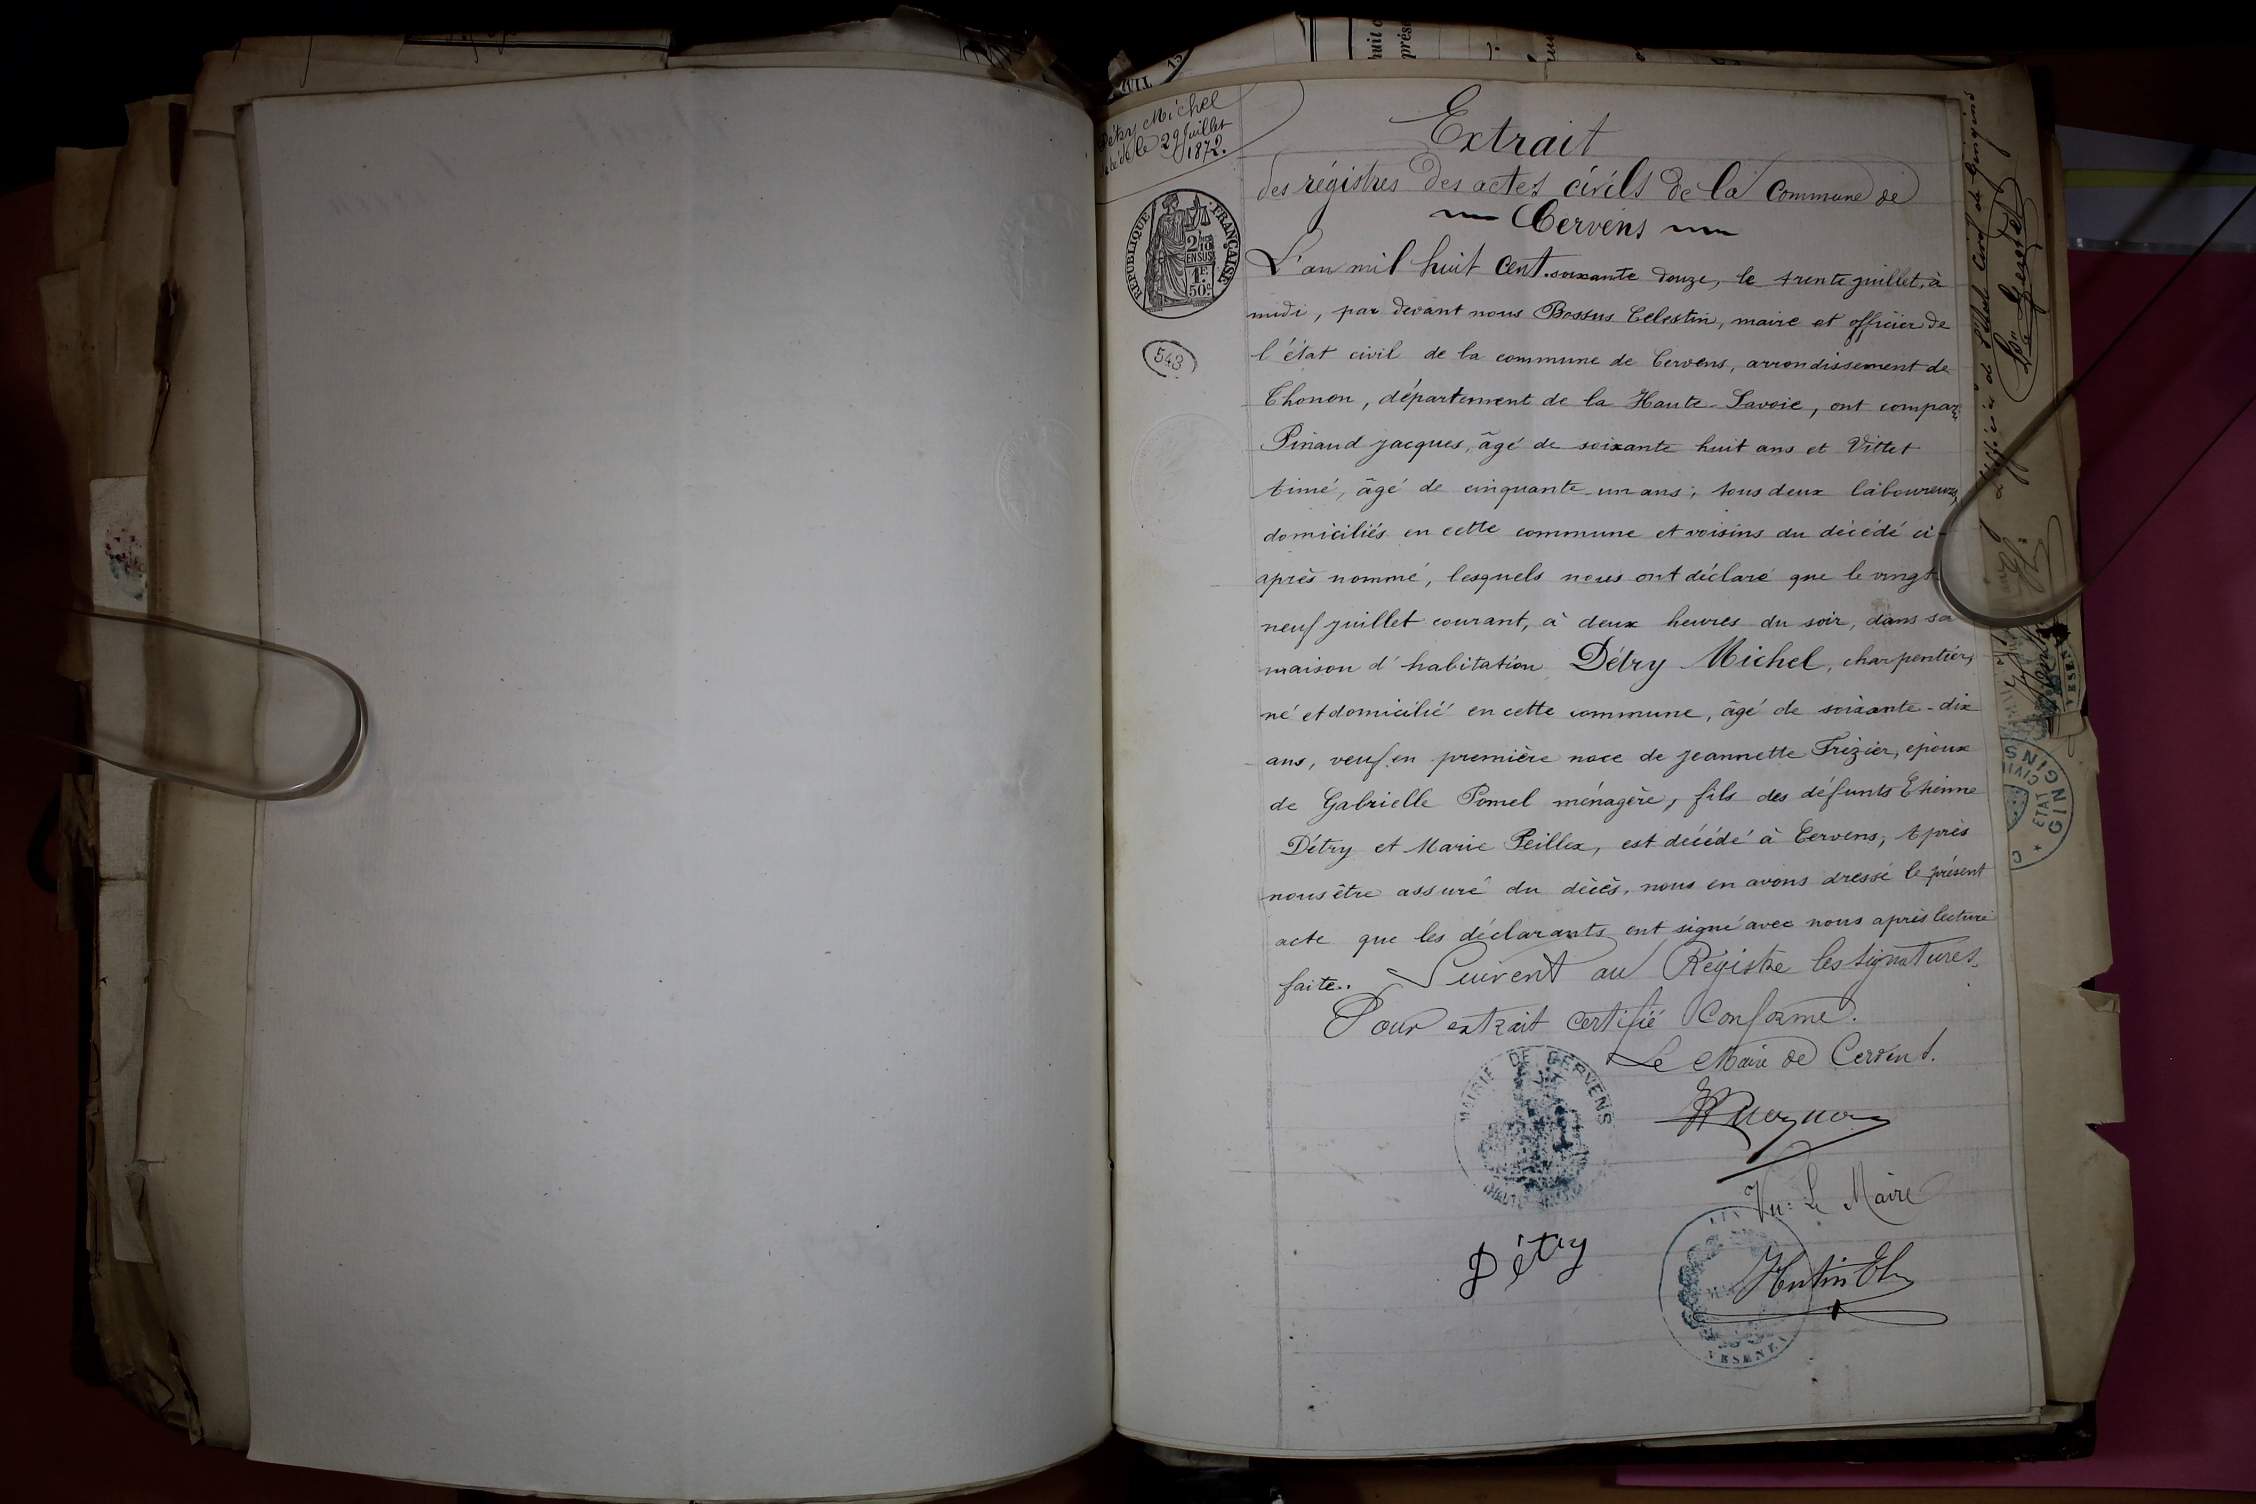 Détry Michel
décédé le 29 Juillet
1872.
RÉPUBLIQUE FRANÇAISE
2/10
EN SUS
1F.
50c.
543
Extrait
des régistres des actes civils de la Commune de
Cervens
L'an mil huit Cent soixante douze, le trente juillet, à
midi, par devant nous Bossus Celestin, maire et officier de
l'état civil de la commune de Cervens, arrondissement de
Thonon, département de la Haute-Savoie, ont comparu
Pinaud jacques, âgé de soixante huit ans et Vittet
Aimé, âgé de cinquante-un ans; tous deux laboureurs,
domiciliés en cette commune et voisins du décédé ci-
après nommé, lesquels nous ont déclaré que le vingt-
neuf juillet courant, à deux heures du soir, dans sa
maison d'habitation Détry Michel, charpentier,
né et domicilié en cette commune, âgé de soixante-dix
ans, veuf en première noce de jeannette Frézier, epoux
de Gabrielle Pomel ménagère, fils des défunts Etienne
Détry et Marie Peillex, est décédé à Cervens; Après
nous être assuré du décès, nous en avons dressé le présent
acte que les déclarants ont signé avec nous après lecture
faite.. Suivent au Régistre les signatures.
Pour extrait certifié Conforme.
Le Maire de Cervens.
MAIRIE DE CERVENS
Vu: Le Maire
Détry
Hutin
L'Officier de l'Etat Civil de Gingins
ETAT CIVIL
GINGINS